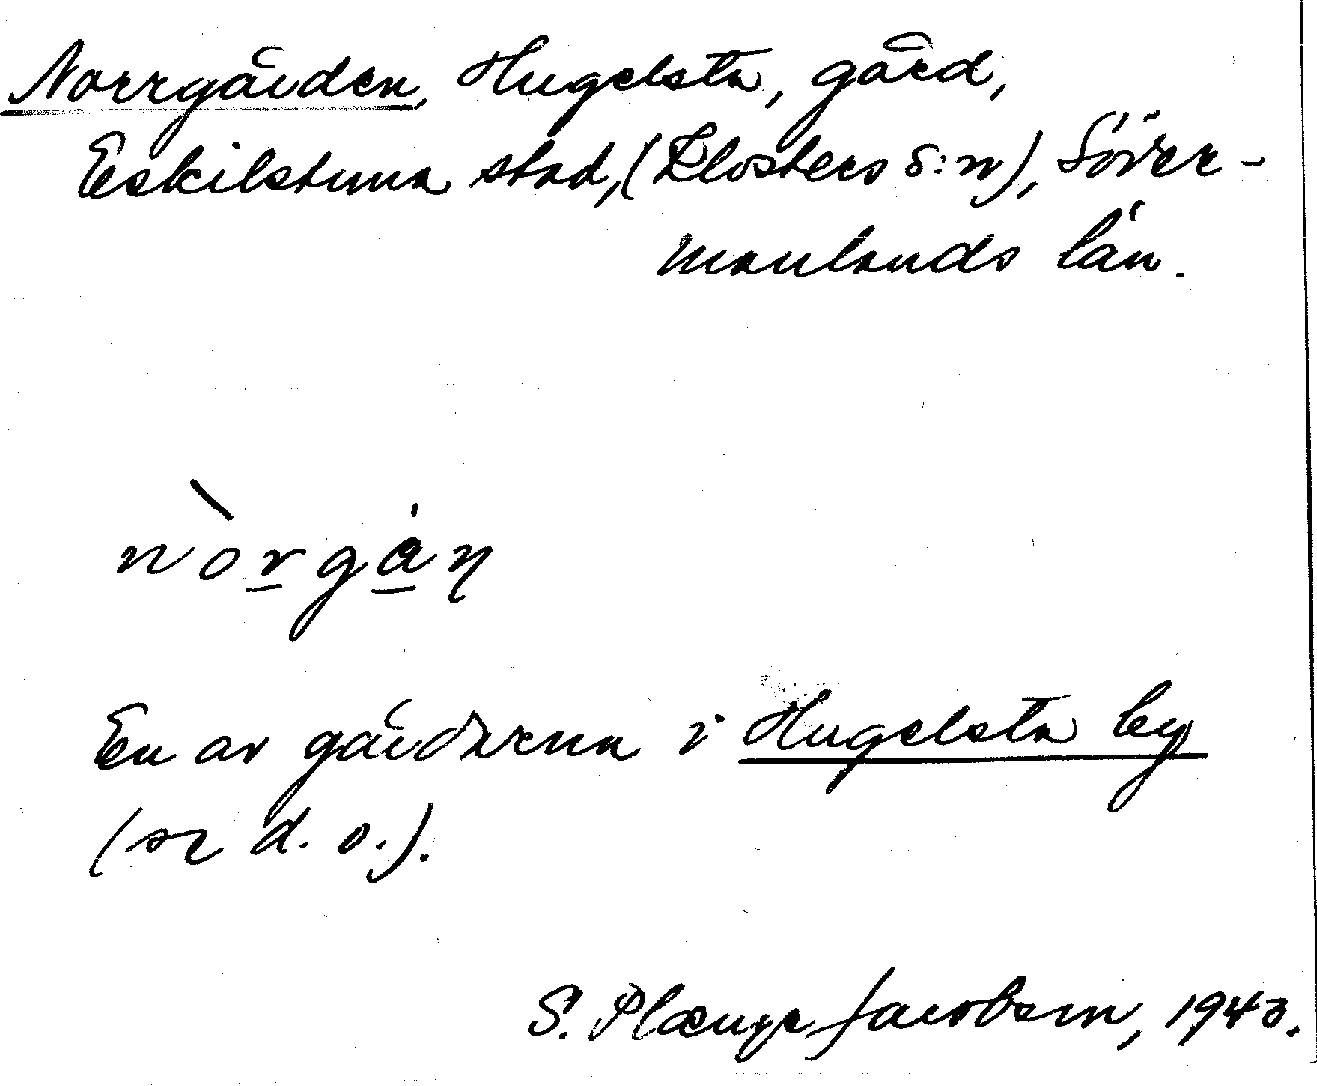 Norrgården, Hugelsta, gård,
Eskilstuna stad, (Klosters s:n), Söder-
manlands län.
nòrgån
En av gårdarna i Hugelsta by
(se d. o.).
S. Plænge Jacobson, 1943.